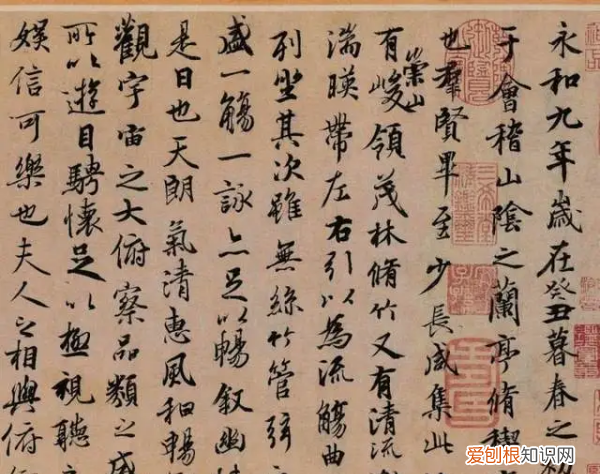 永和九年歲在癸丑暮春之
于會稽山陰之蘭亭脩禊
也羣賢畢至少長咸集此
有崇山峻領茂林脩竹又有清流
湍暎帶左右引以為流觴曲
列坐其次雖無絲竹管弦
盛一觴一詠亦足以暢叙幽
是日也天朗氣清惠風和暢
觀宇宙之大俯察品類之盛
所以遊目騁懷足以極視聽之
娛信可樂也夫人之相與俯
爱刨根知识网